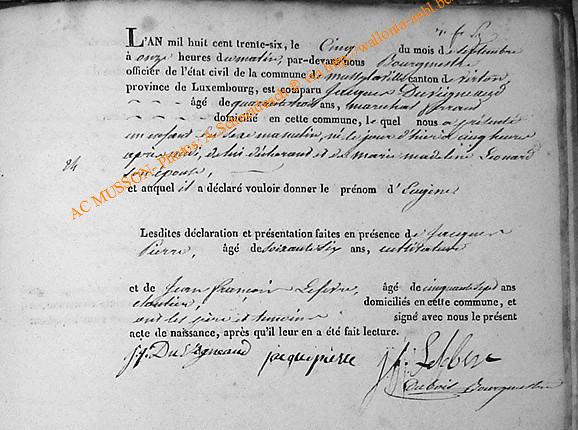 L'AN mil huit cent trente-six, le Cinq du mois de Septembre
à onze heures du matin, par-devant nous Bourgmestre
officier de l'état civil de la commune de canton de Virton,
province de Luxembourg, est comparu Jacques Duvigneaud
âgé de quarante trois ans, marechal ferrant
domicilié en cette commune, le quel nous a présenté
un enfant du sexe masculin, né le jour d'hier à cinq heures
après midi, de lui déclarant et de marie madeleine Leonard
son épouse,
24
et auquel il a déclaré vouloir donner le prénom d'Eugène
Lesdites déclaration et présentation faites en présence de Jacques
Pierre, âgé de soixante six ans, instituteur
et de Jean françois Lefevre, âgé de cinquante sept ans
cloutier, domiciliés en cette commune, et
ont les père et temoins signé avec nous le présent
acte de naissance, après qu'il leur en a été fait lecture.
jacque pierre
Dubois Bourgmestre
AC MUSSON- Photos: A. http://wallonia-asbl.be